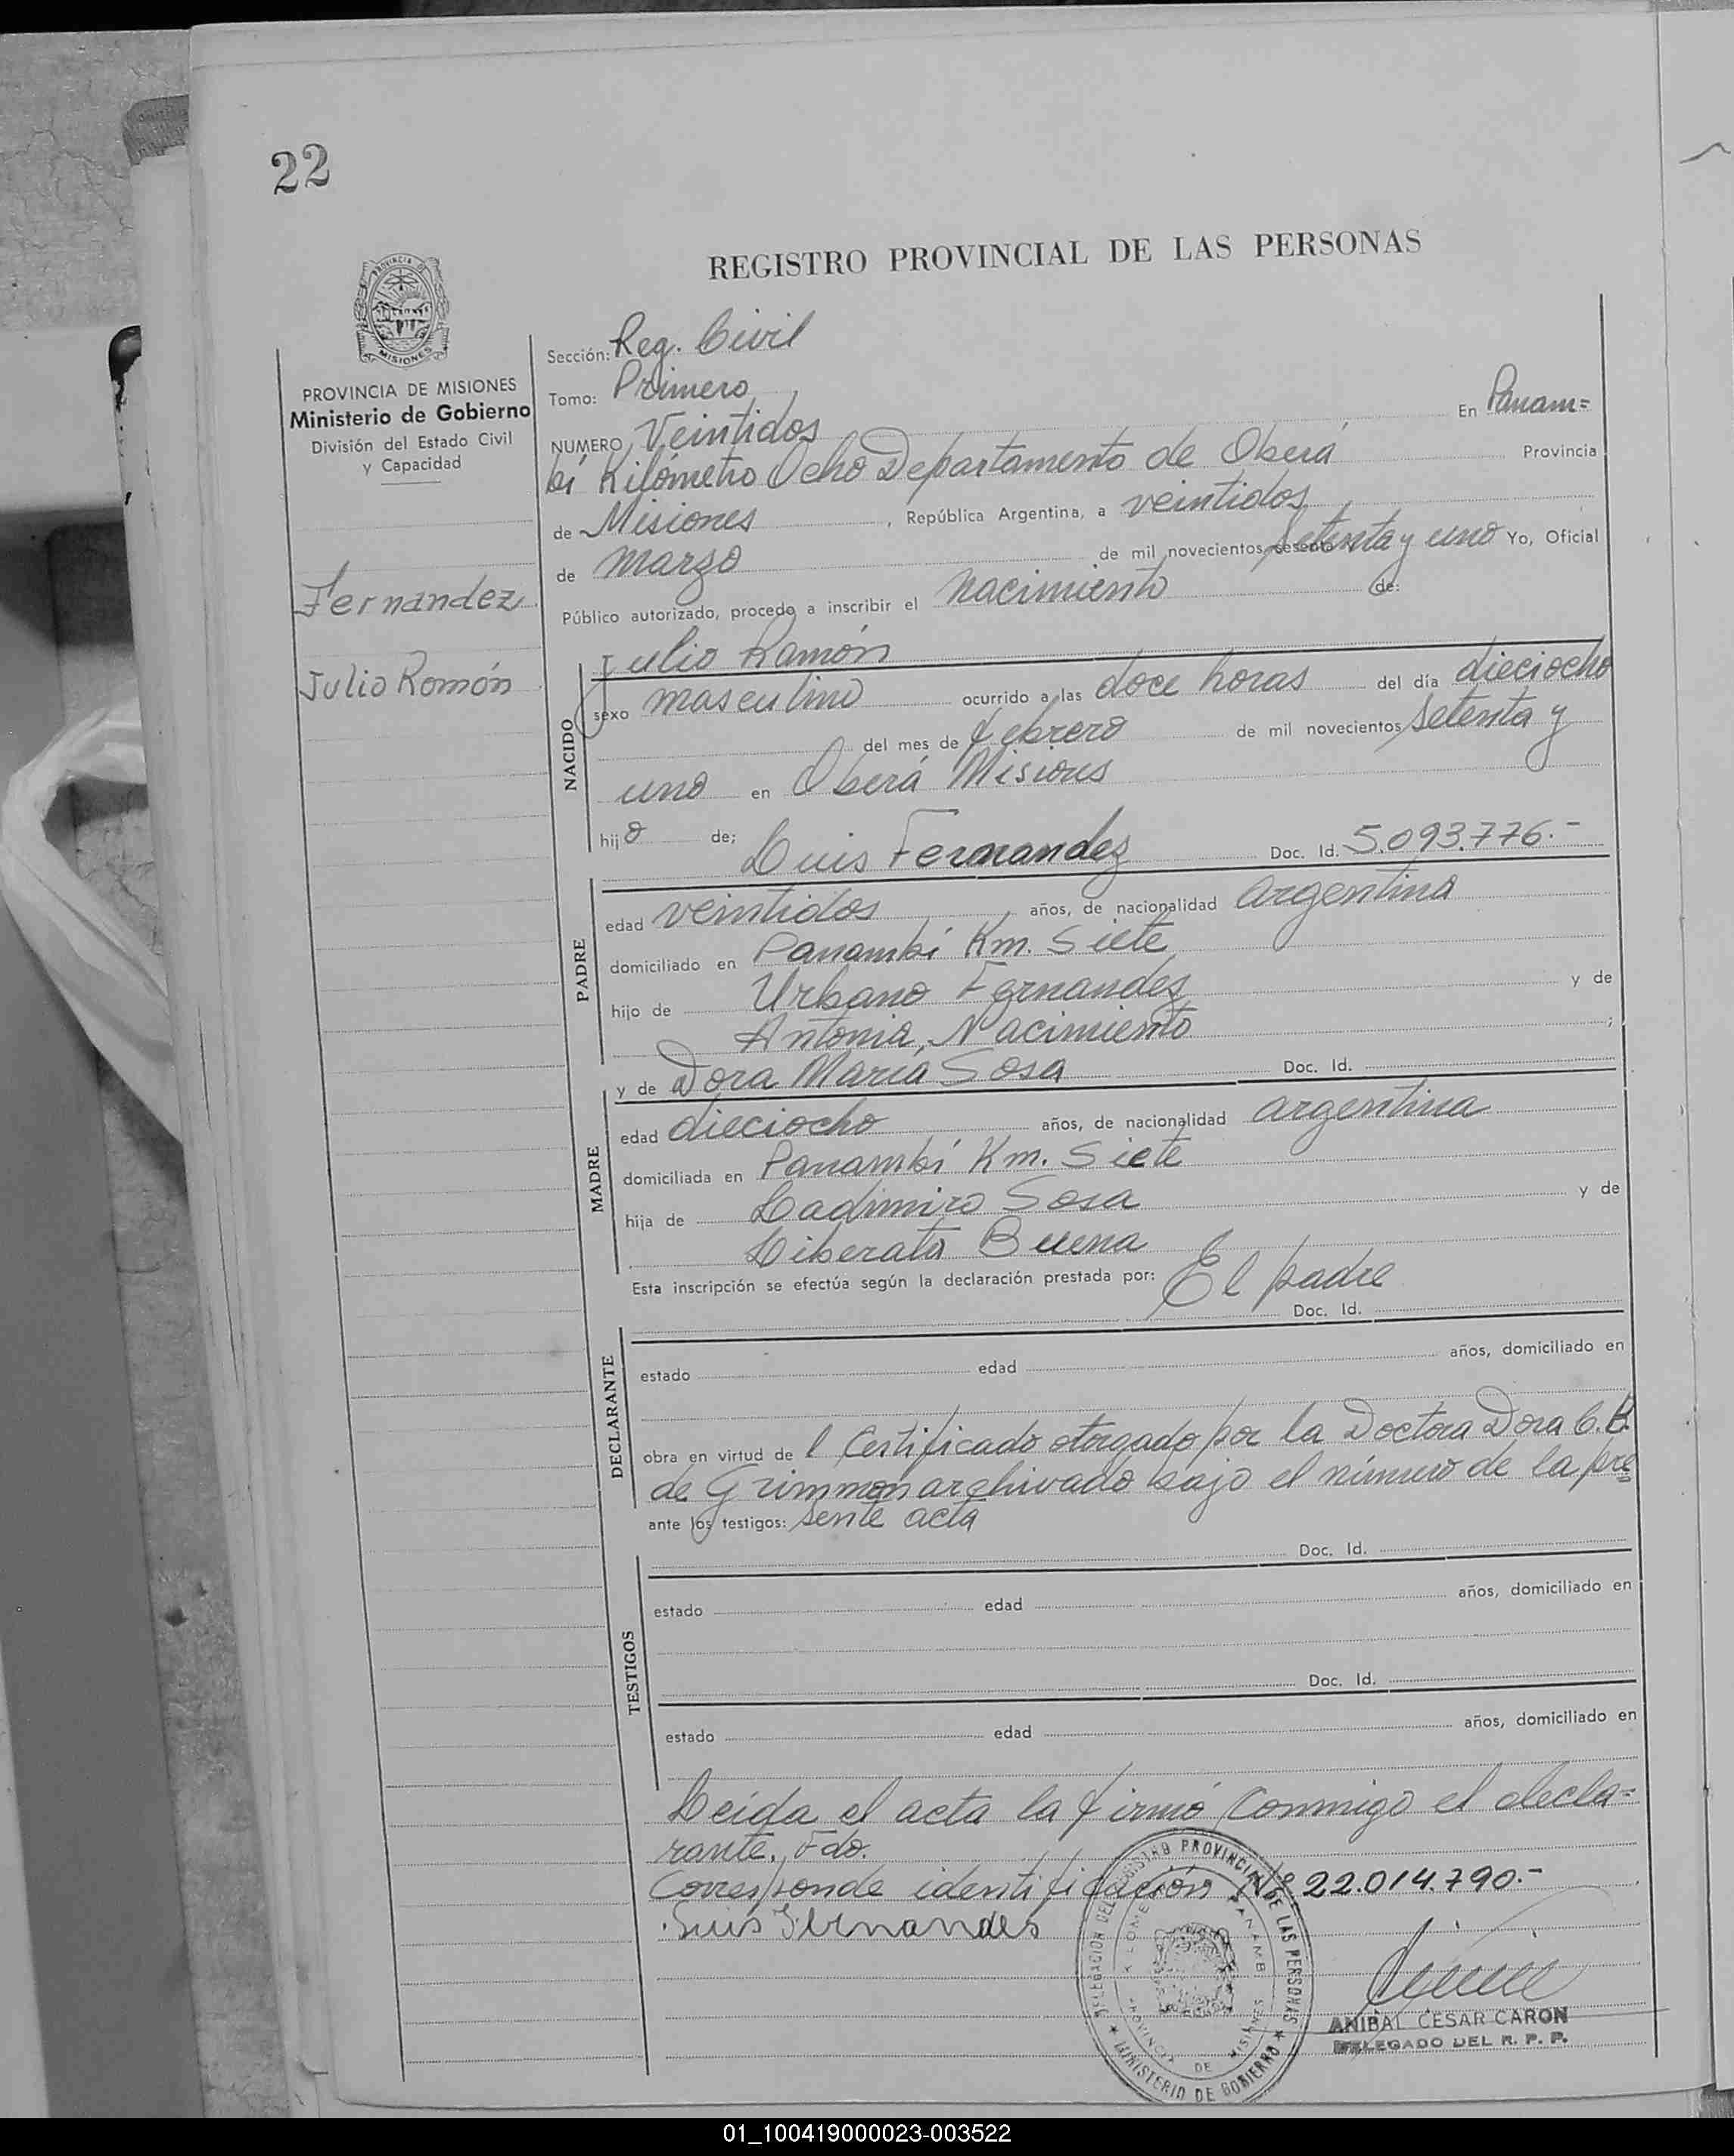 22
REGISTRO PROVINCIAL DE LAS PERSONAS
PROVINCIA DE MISIONES
Ministerio de Gobierno
División del Estado Civil
y Capacidad
Fernandez
Julio Romón
Sección: Reg. Civil
Tomo: Primero
NUMERO Veintidos En Panam=
bí Kilómetro Ocho Departamento de Oberá Provincia
de Misiones, República Argentina, a veintidos
de marzo de mil novecientos sesenta Setenta y uno Yo, Oficial
Público autorizado, procedo a inscribir el nacimiento de:
Julio Ramón
NACIDO
sexo masculino ocurrido a las doce horas del día dieciocho
del mes de febrero de mil novecientos setenta y
uno en Oberá Misiones
hijo de; Luis Fernandez Doc. Id. 5.093.776.-
PADRE
edad veintidos años, de nacionalidad argentina
domiciliado en Panambí Km. Siete
hijo de Urbano Fernandez y de
Antonia Nacimiento ;
y de Dora María Sosa Doc. Id.
MADRE
edad dieciocho años, de nacionalidad argentina
domiciliada en Panambí Km. Siete
hija de Ladimiro Sosa y de
Liberata Buena
Esta inscripción se efectúa según la declaración prestada por: El padre
Doc. Id.
DECLARANTE
estado edad años, domiciliado en
obra en virtud de l Certificado otorgado por la Doctora Dora C. B.
de Grimmon archivado bajo el número de la pre
ante los testigos: sente acta
Doc. Id.
TESTIGOS
estado edad años, domiciliado en
Doc. Id.
estado edad años, domiciliado en
Leida el acta la firmó conmigo el decla=
rante. Fdo.
Corresponde identificación Nº 22.014.790.-
Luis Fernandes
DELEGACION DEL REGISTRO PROVINCIAL DE LAS PERSONAS
MINISTERIO DE GOBIERNO
PROVINCIA DE MISIONES
ANIBAL CESAR CARON
DELEGADO DEL R. P. P.
01_100419000023-003522